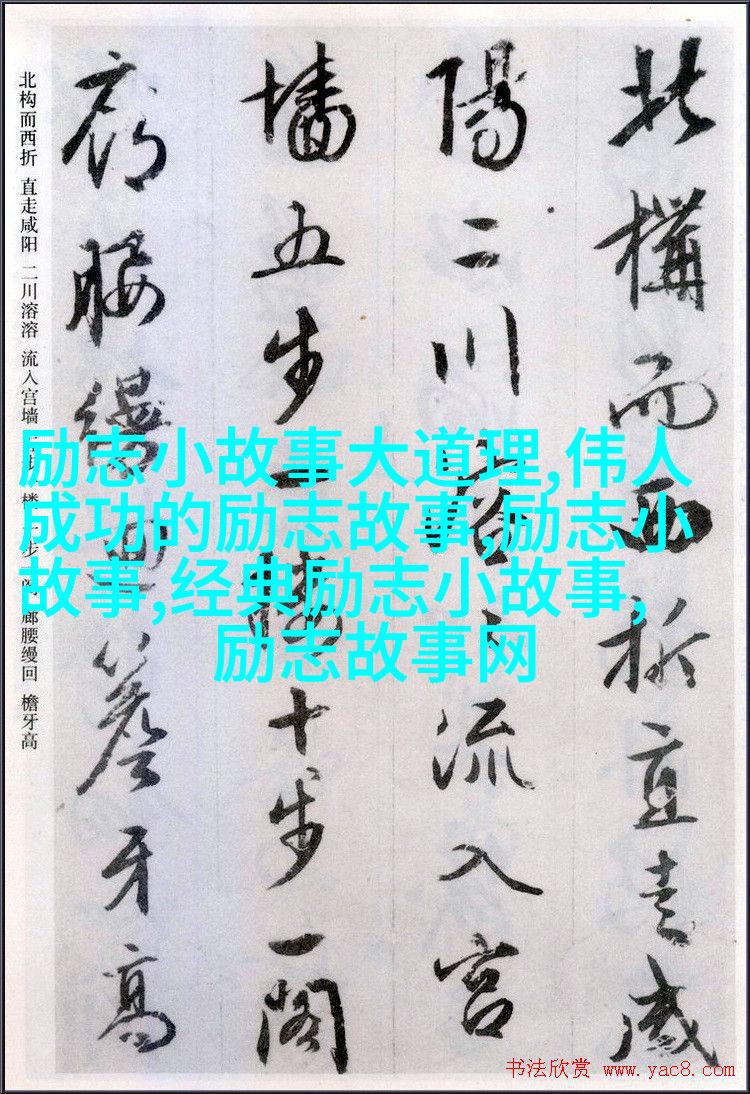 北構而西折直走咸
陽二川溶〻流入宮
墻五步一樓十步一閣
廊腰縵迴簷牙高
北构而西折 直走咸阳 二川溶溶 流入宫墙 步 楼 步 阁 廊腰缦回 檐牙高
励志小故事大道理,伟人
成功的励志故事,励志小
故事,经典励志小故事,
励志故事网
书法欣赏 www.yac8.com